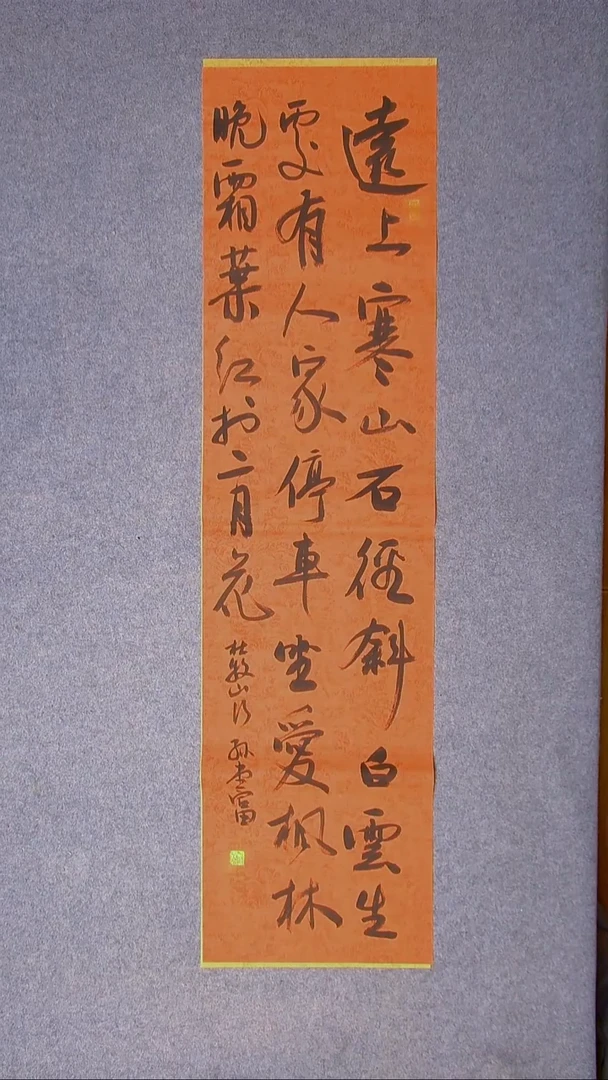 遠上寒山石徑斜白雲生
處有人家停車坐愛楓林
晚霜葉紅於二月花
杜牧山行 孫
富